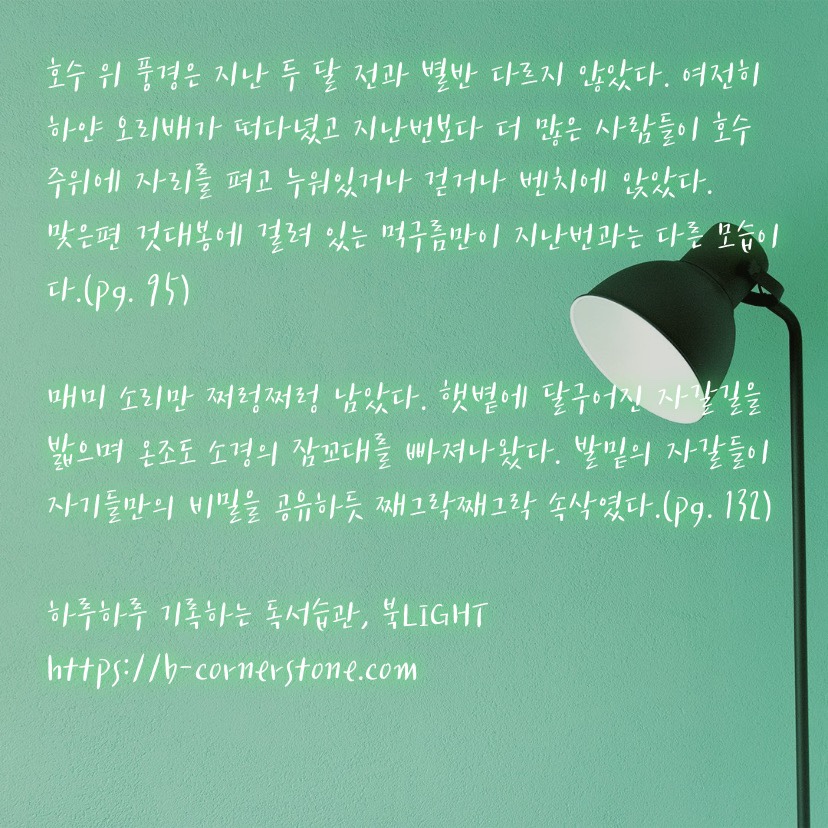 호수 위 풍경은 지난 두 달 전과 별반 다르지 않았다. 여전히
하얀 오리배가 떠다녔고 지난번보다 더 많은 사람들이 호수
주위에 자리를 펴고 누워있거나 걷거나 벤치에 앉았다.
맞은편 것대봉에 걸려 있는 먹구름만이 지난번과는 다른 모습이
다.(pg. 95)
매미 소리만 쩌렁쩌렁 남았다. 햇볕에 달구어진 자갈길을
밟으며 온조도 소경의 잠꼬대를 빠져나왔다. 발밑의 자갈들이
자기들만의 비밀을 공유하듯 째그락째그락 속삭였다.(pg. 132)
하루하루 기록하는 독서습관, 북LIGHT
https://b-cornerstone.com